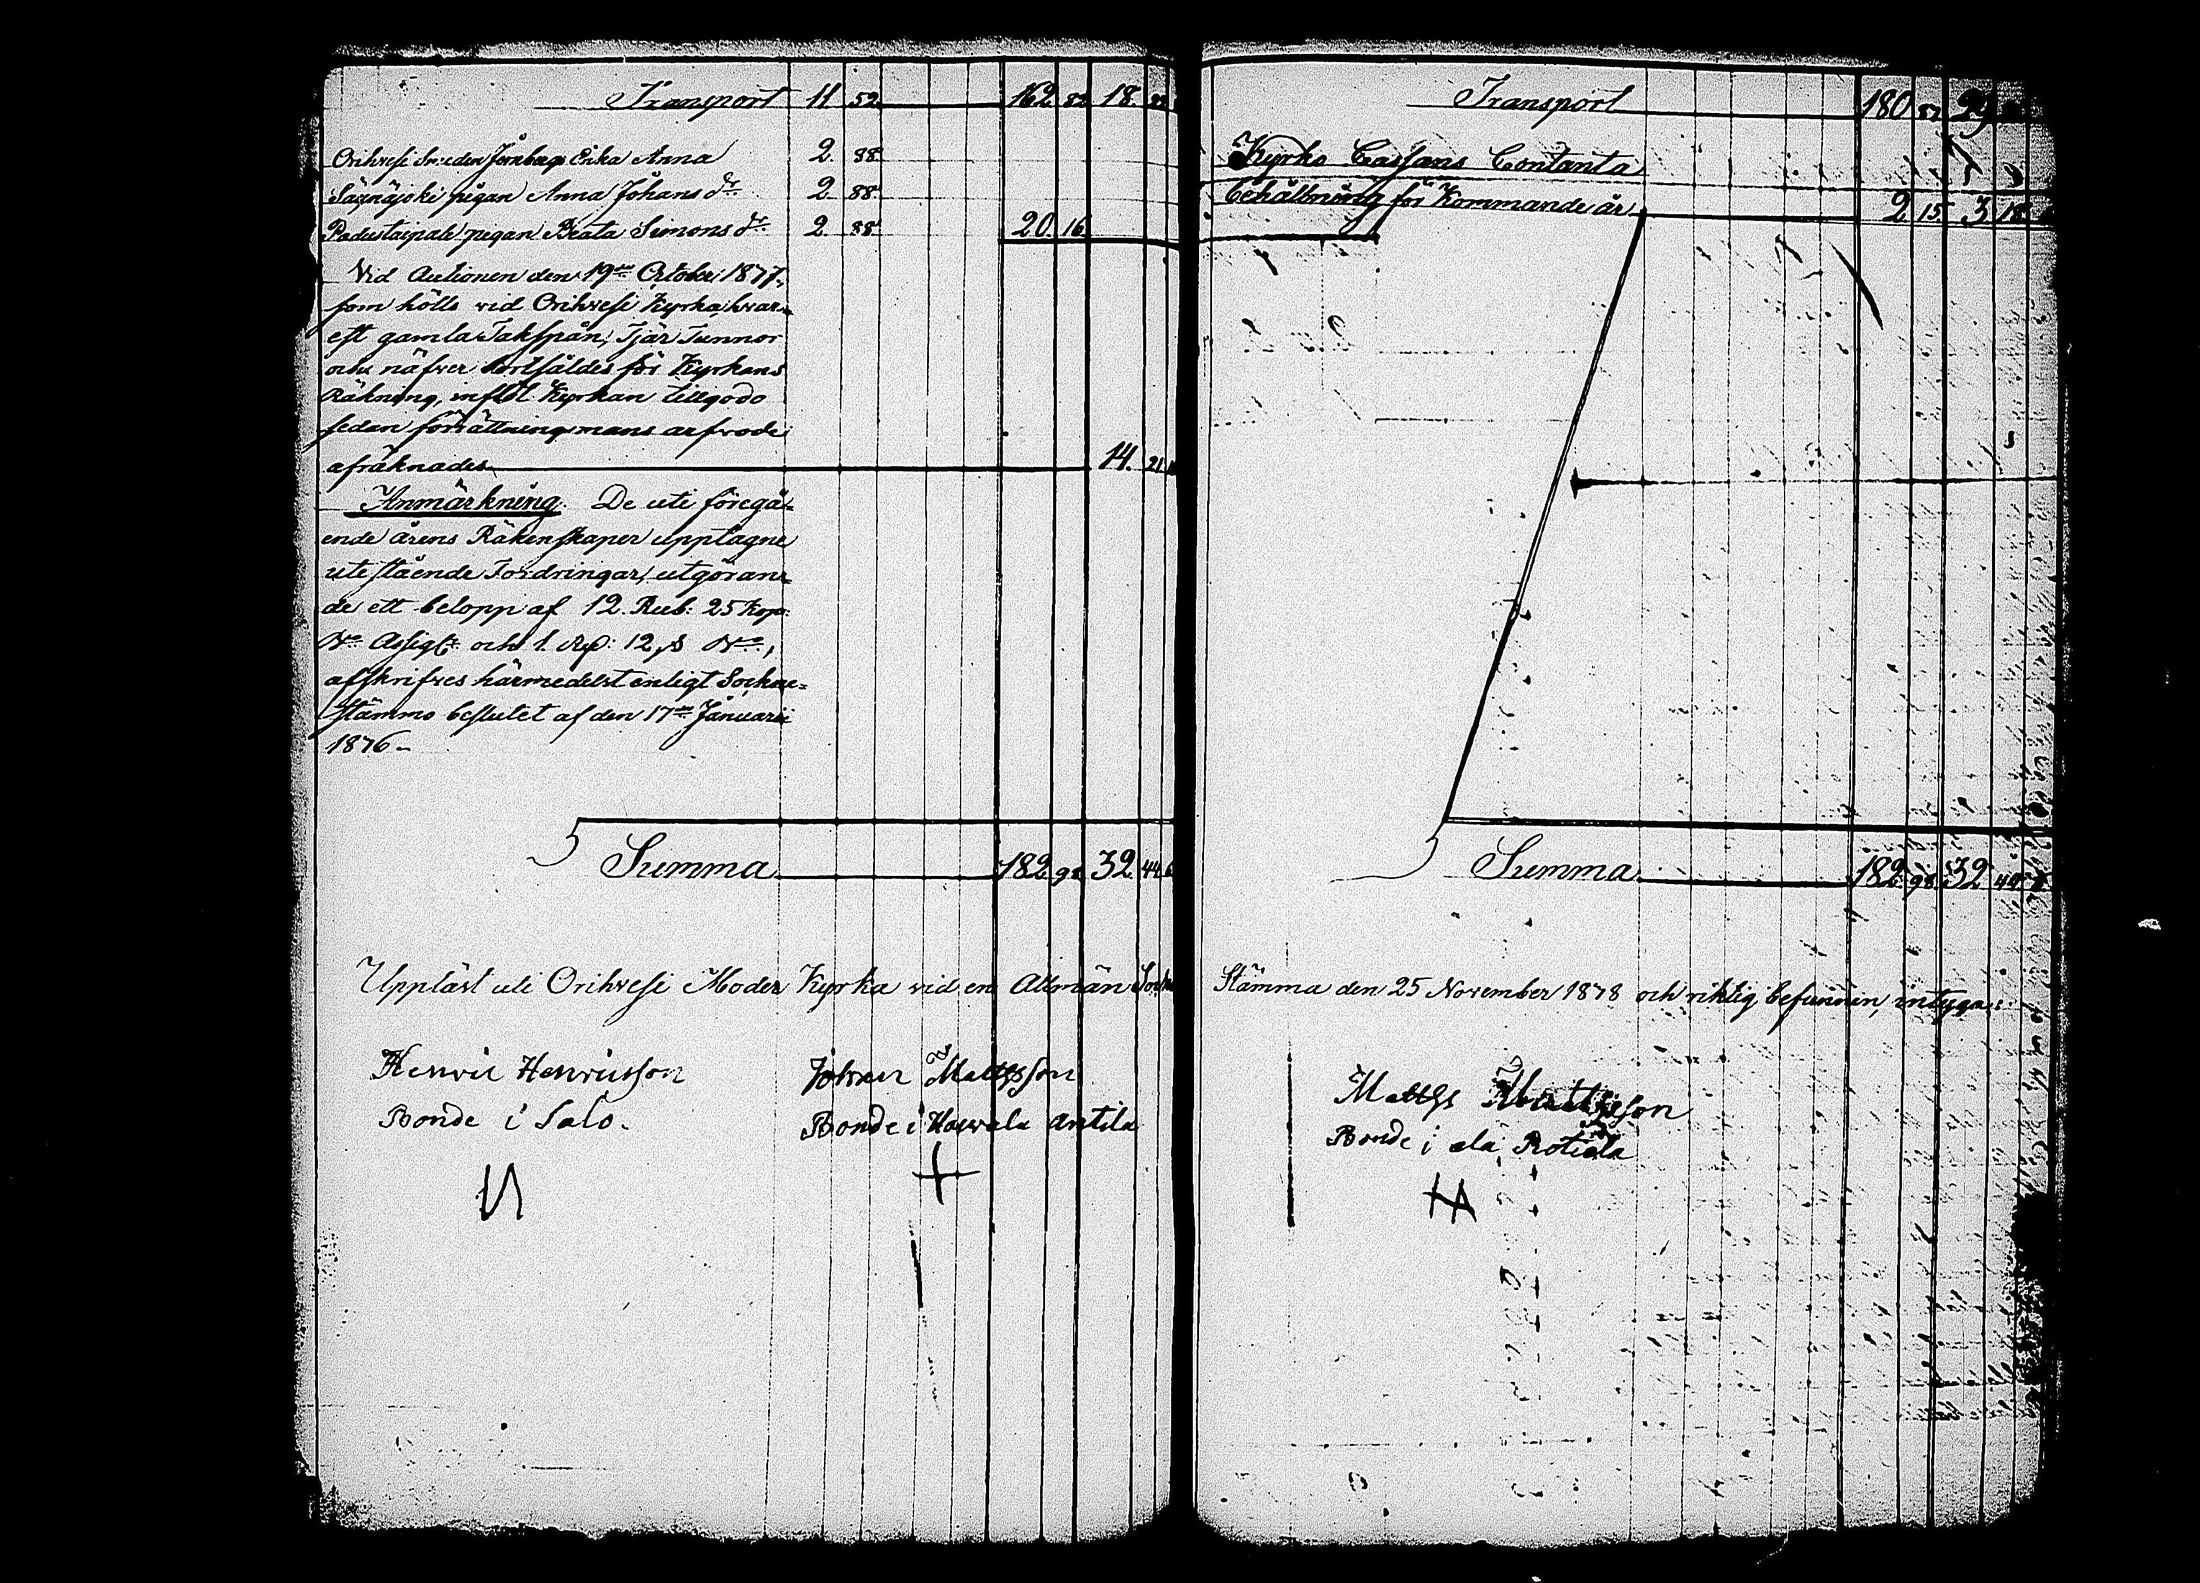 Transport 11 52 162 82 18
Orihvesi Smeden Jernbergs Enka Anna 2 88
Säynäjoki pigan Anna Johans dr 2 88
Padustaipale pigan Beata Simons dr 2 88 20 16
Vid Auctionen den 19de October 1877,
som hölls vid Orihvesi Kyrka, hvar-
est gamla Takspån, Tjär Tunnor
och näfver bortsåldes för Kyrkans
Räkning, inflöt Kyrkan tillgodo
sedan förrättningsmans arfvode
afräknades 14 21
Anmärkning. De uti föregå-
ende årens Räkenskaper upptagne
utestående Fordringar, utgöran-
de ett belopp af 12 Rub: 25 Kop:
Bco Assigt och 1 Rd: 12 s Bco,
afskrifves härmedelst enligt Sockne-
stämmo beslutet af den 17de Januarii
1876.
Summa 182 98 32 44
Transport 180 29
Kyrko Cassans Contanta
behållning för Kommande år 2 15 3
Summa 182 98 32
Uppläst uti Orihvesi Moder Kyrka vid en Allmän Sockne Stämma den 25 November 1878 och riktig befunnen, intyga:
Henric Henricsson
Bonde i Salo.
Johan Mattsson
Bonde i Antila
Matths Matthsson
Bonde i ala Rotiala